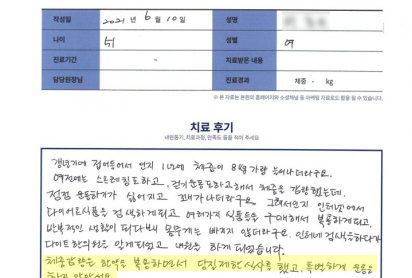 작성일 2021 년 6 월 10 일 성명
나이 51 성별 여
진료기간 - 치료받은 내용
담당원장님 진료경과 체중 - kg
※ 본 자료는 본원의 홈페이지와 소셜채널 등 마케팅 자료로도 활용 될 수 있습니다.
치료 후기
내원동기, 치료과정, 만족도 등을 적어 주세요
갱년기에 접어들어서 인지 1년에 체중이 8kg 가량 늘어나더라구요.
여전에는 스트레칭도하고, 걷기운동도하고해서 체중을 감량했는데,
점점 운동하기가 싫어지고 꾀가나더라구요. 그래서인지 인터넷에서
다이어트식품을 검색하게되고, 여러가지 식품들을 구매해서 복용하게되고,
반복적인 생활이 되다보니 몸무게는 빠지지 않더라구요. 인터넷 검색하다가
다이트한의원을 알게되었고 내원을 하게 되었습니다.
체중감량은 한약을 복용하면서 당질제한식사를 했고, 특별하게 운동은
하지 않았어요.